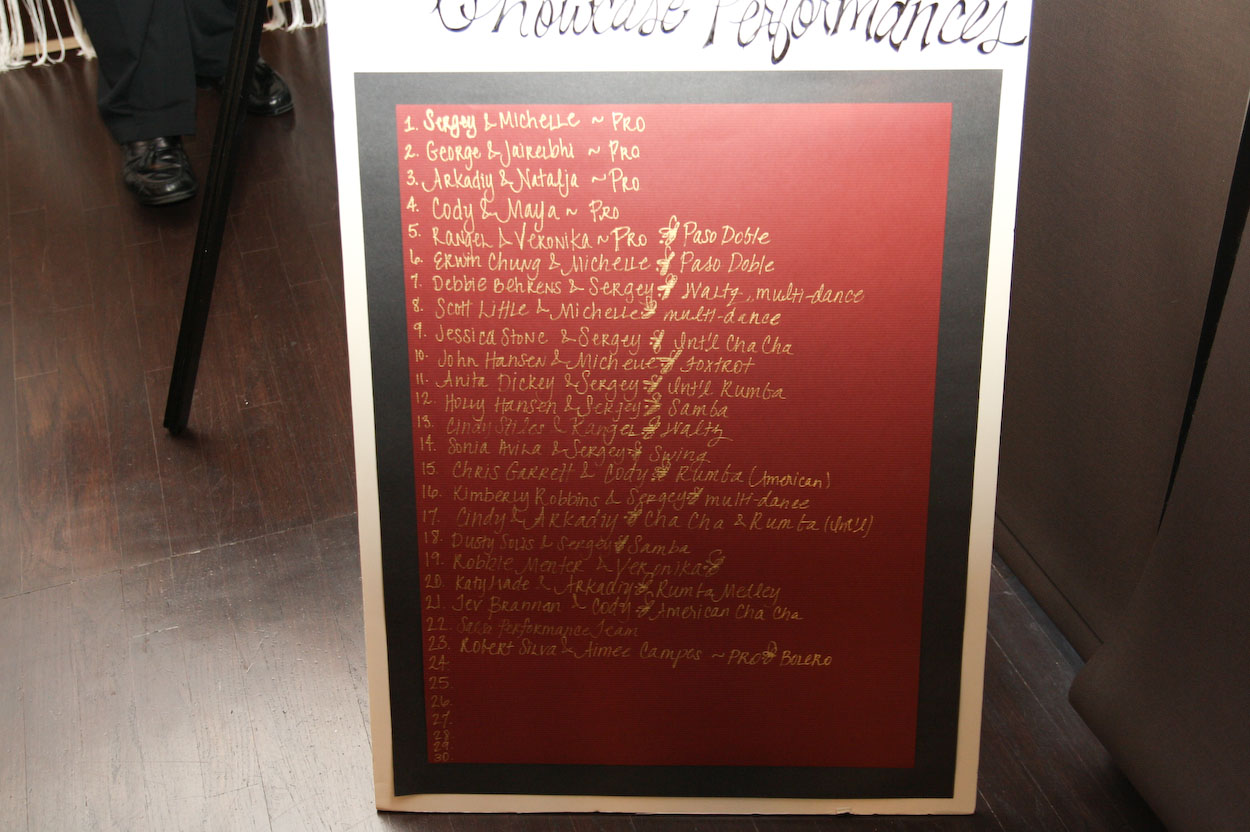 Showcase Performances
1. Sergey & Michelle ~ Pro
2. George & Jaireibhi ~ Pro
3. Arkadiy & Natalja ~ Pro
4. Cody & Maya ~ Pro
5. Rangel & Veronika ~ Pro Paso Doble
6. Erwin Chung & Michelle Paso Doble
7. Debbie Behrens & Sergey Waltz, multi-dance
8. Scott Little & Michelle multi-dance
9. Jessica Stone & Sergey Int'l Cha Cha
10. John Hansen & Michelle Foxtrot
11. Anita Dickey & Sergey Int'l Rumba
12. Holly Hansen & Sergey Samba
13. Cindy Stiles & Rangel Waltz
14. Sonia Avila & Sergey Swing
15. Chris Garrett & Cody Rumba (American)
16. Kimberly Robbins & Sergey multi-dance
17. Cindy & Arkadiy Cha Cha & Rumba (Int'l)
18. Dusty Solis & Sergey Samba
19. Robbie Menter & Veronika
20. Katy Wade & Arkadiy Rumba Medley
21. Jev Brannan & Cody American Cha Cha
22. Salsa Performance Team
23. Robert Silva & Aimee Campos ~ Pro Bolero
24.
25.
26.
27.
28.
29.
30.